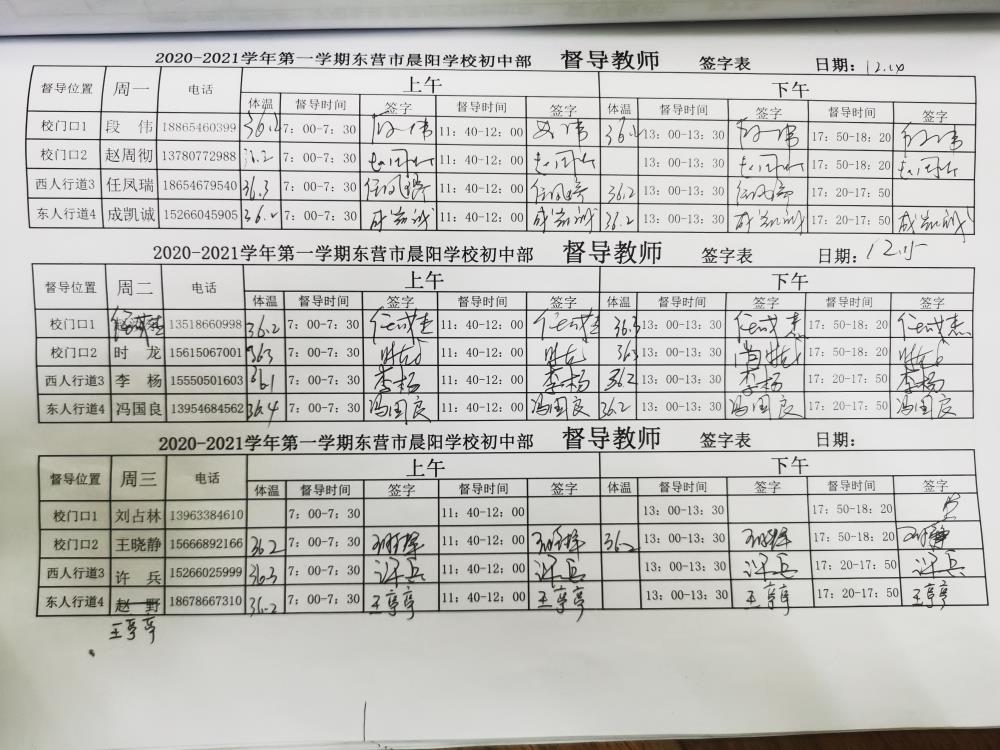 2020-2021学年第一学期东营市晨阳学校初中部 督导教师 签字表 日期: 12.14
督导位置 周一 电话 上午 下午
体温 督导时间 签字 督导时间 签字 体温 督导时间 签字 督导时间 签字
校门口1 段 伟 18865460399 36.2 7: 00-7: 30 段伟 11: 40-12: 00 段伟 36.2 13: 00-13: 30 段伟 17: 50-18: 20 段伟
校门口2 赵周彻 13780772988 7: 00-7: 30 11: 40-12: 00 13: 00-13: 30 17: 50-18: 20
西人行道3 任凤瑞 18654679540 36.3 7: 00-7: 30 任凤瑞 11: 40-12: 00 任凤瑞 36.2 13: 00-13: 30 任凤瑞 17: 20-17: 50
东人行道4 成凯诚 15266045905 36.2 7: 00-7: 30 成凯诚 11: 40-12: 00 成凯诚 36.2 13: 00-13: 30 成凯诚 17: 20-17: 50 成凯诚
2020-2021学年第一学期东营市晨阳学校初中部 督导教师 签字表 日期: 12.15
督导位置 周二 电话 上午 下午
体温 督导时间 签字 督导时间 签字 体温 督导时间 签字 督导时间 签字
校门口1 13518660998 36.2 7: 00-7: 30 11: 40-12: 00 36.3 13: 00-13: 30 17: 50-18: 20
校门口2 时 龙 15615067001 36.3 7: 00-7: 30 时龙 11: 40-12: 00 时龙 36.3 13: 00-13: 30 时龙 17: 50-18: 20 时龙
西人行道3 李 杨 15550501603 36.1 7: 00-7: 30 李杨 11: 40-12: 00 李杨 36.2 13: 00-13: 30 李杨 17: 20-17: 50 李杨
东人行道4 冯国良 13954684562 36.4 7: 00-7: 30 冯国良 11: 40-12: 00 冯国良 36.2 13: 00-13: 30 冯国良 17: 20-17: 50 冯国良
2020-2021学年第一学期东营市晨阳学校初中部 督导教师 签字表 日期:
督导位置 周三 电话 上午 下午
体温 督导时间 签字 督导时间 签字 体温 督导时间 签字 督导时间 签字
校门口1 刘占林 13963384610 7: 00-7: 30 11: 40-12: 00 13: 00-13: 30 17: 50-18: 20
校门口2 王晓静 15666892166 36.2 7: 00-7: 30 王晓静 11: 40-12: 00 王晓静 36.2 13: 00-13: 30 王晓静 17: 50-18: 20 王晓静
西人行道3 许 兵 15266025999 36.3 7: 00-7: 30 许兵 11: 40-12: 00 许兵 13: 00-13: 30 许兵 17: 20-17: 50 许兵
东人行道4 赵 野 18678667310 36.2 7: 00-7: 30 王亭亭 11: 40-12: 00 王亭亭 13: 00-13: 30 王亭亭 17: 20-17: 50 王亭亭
王亭亭